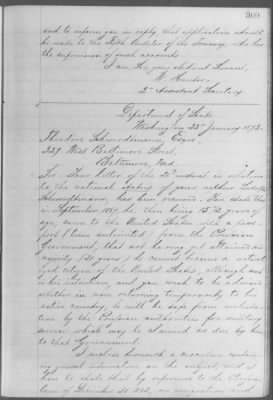 309
and to inform you in reply, that application should
be made to the Fifth Auditor of the Treasury, who has
the supervision of such accounts.
I am, Sir, your obedient Servant,
W. Hunter.
2nd Assistant Secretary.
Department of State,
Washington 23d January 1873.
Theodore Schnordmann, Esqre
229 West Baltimore Street,
Baltimore, Md.
Sir: Your letter of the 21st instant in relation
to the national status of your nephew
has been received. You state that
in September 1867, he then being 15 1/2 years of
age, came to the United States with a pass-
port (time unlimited) from the Prussian
Government, that not having yet attained his
majority (21 years) he cannot become a natural-
ized citizen of the United States, although such
is his intention, and you wish to be advised
whether in now returning temporarily to his
native country, he will be safe from molesta-
tion by the Prussian authorities for military
service which may be claimed as due by him
to that Government.
I enclose herewith a circular contain-
ing general information on the subject, and I
have to state that by reference to the Prussian
law of December 31. 1842, on emigration and